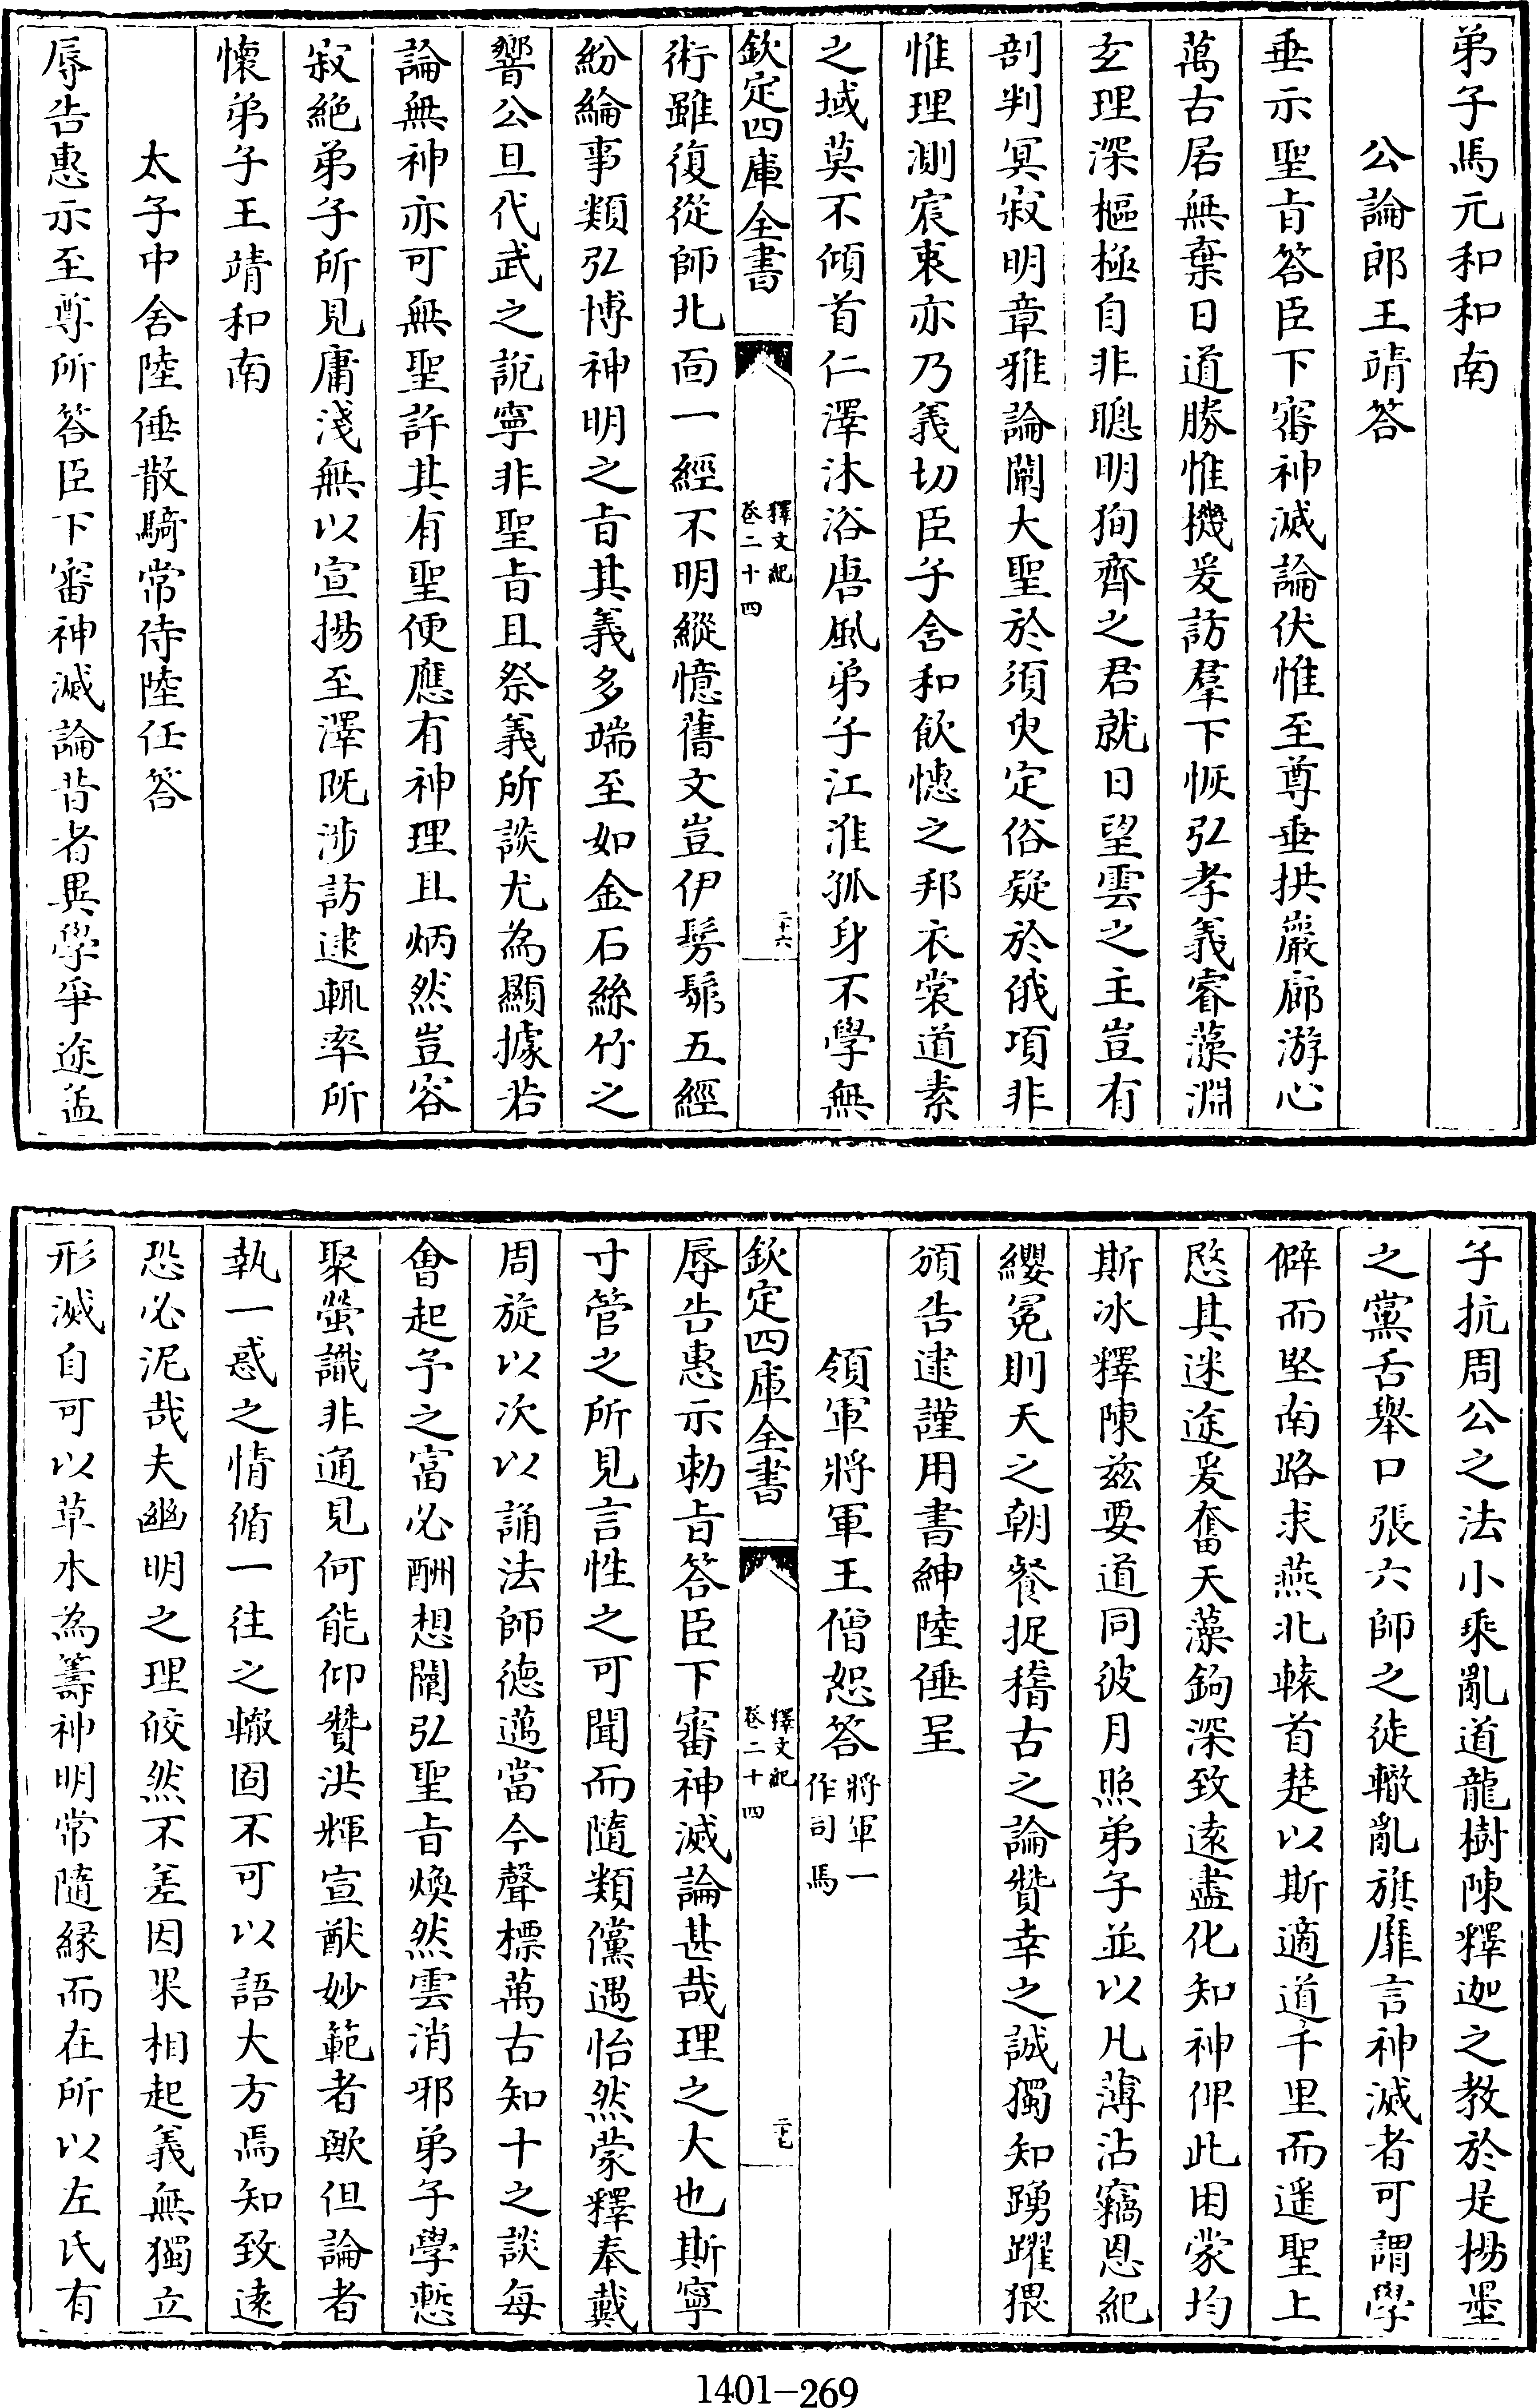 弟子馬元和和南
公論郎王靖答
垂示聖旨答臣下審神滅論伏惟至尊垂拱巖廊游心
萬古居無棄日道勝惟機爰訪羣下恢弘孝義睿藻淵
玄理深樞極自非聰明狥齊之君就日望雲之主豈有
剖判冥寂明章雅論闡大聖於須臾定俗疑於俄項非
惟理測宸衷亦乃義切臣子含和飲憓之邦衣裳道素
之域莫不傾首仁澤沐浴唐風弟子江淮孤身不學無
欽定四庫全書
釋文紀
卷二十四
二十六
術雖復從師北面一經不明縱憶舊文豈伊髣髴五經
紛綸事類弘博神明之旨其義多端至如金石絲竹之
響公旦代武之說寧非聖旨且祭義所談尤為顯據若
論無神亦可無聖許其有聖便應有神理且炳然豈容
寂絶弟子所見庸淺無以宣揚至澤既涉訪逮輒率所
懷弟子王靖和南
太子中舍陸倕散騎常侍陸任答
辱告惠示至尊所答臣下審神滅論昔者異學爭途孟
子抗周公之法小乘亂道龍樹陳釋迦之教於是楊墨
之黨舌舉口張六師之徒轍亂旗靡言神滅者可謂學
僻而堅南路求燕北轅首楚以斯適道千里而遥聖上
愍其迷途爰奮天藻鉤深致遠盡化知神伊此困蒙均
斯冰釋陳兹要道同彼月照弟子並以凡薄沾竊恩紀
纓冕則天之朝餐捉稽古之論贊幸之誠獨知踴躍猥
頒告逮謹用書紳陸倕呈
領軍將軍王僧恕答將軍一作司馬
欽定四庫全書
釋文紀
卷二十四
二十七
辱告惠示勅旨答臣下審神滅論甚哉理之大也斯寧
寸管之所見言性之可聞而隨類儻遇怡然蒙釋奉戴
周旋以次以誦法師德邁當今聲標萬古知十之談每
會起予之富必酬想闡弘聖旨煥然雲消邪弟子學慙
聚螢識非通見何能仰贊洪輝宣猷妙範者歟但論者
執一惑之情循一往之轍固不可以語大方焉知致遠
恐必泥哉夫幽明之理皎然不差因果相起義無獨立
形滅自可以草木為籌神明常隨緣而在所以左氏有
1401—269